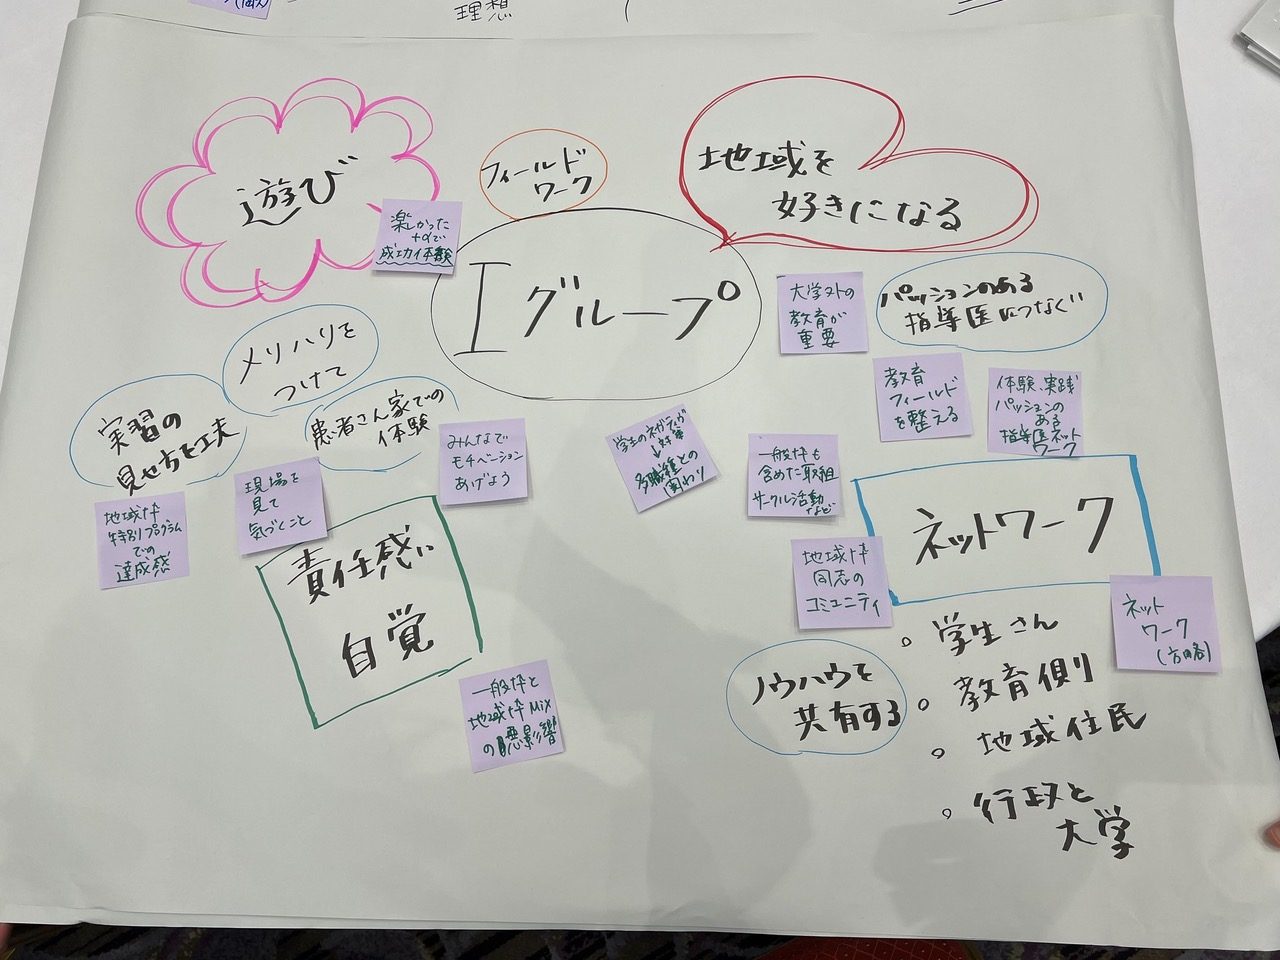 理想
遊び
楽しかった
+αで
成功体験
フィールド
ワーク
地域を
好きになる
Iグループ
大学外の
教育が
重要
パッションのある
指導医につなぐ
教育
フィールド
を整える
体験、実践
パッションの
ある
指導医ネット
ワーク
メリハリを
つけて
実習の
見せ方を工夫
患者さん家での
体験
みんなで
モチベーション
あげよう
学生のネガティヴ
↓対策
多職種との
関わり
一般枠も
含めた取組
サークル活動
など
地域枠
特別プログラム
での
達成感
現場を
見て
気づくこと
責任感い
自覚
一般枠と
地域枠Mix
の悪影響
ネットワーク
地域枠
同志の
コミュニティ
ネット
ワーク
(方略)
ノウハウを
共有する
。学生さん
。教育側
。地域住民
。行政と
大学